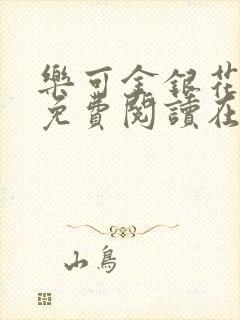 樂可金銀花
免費閱讀在
山鳥